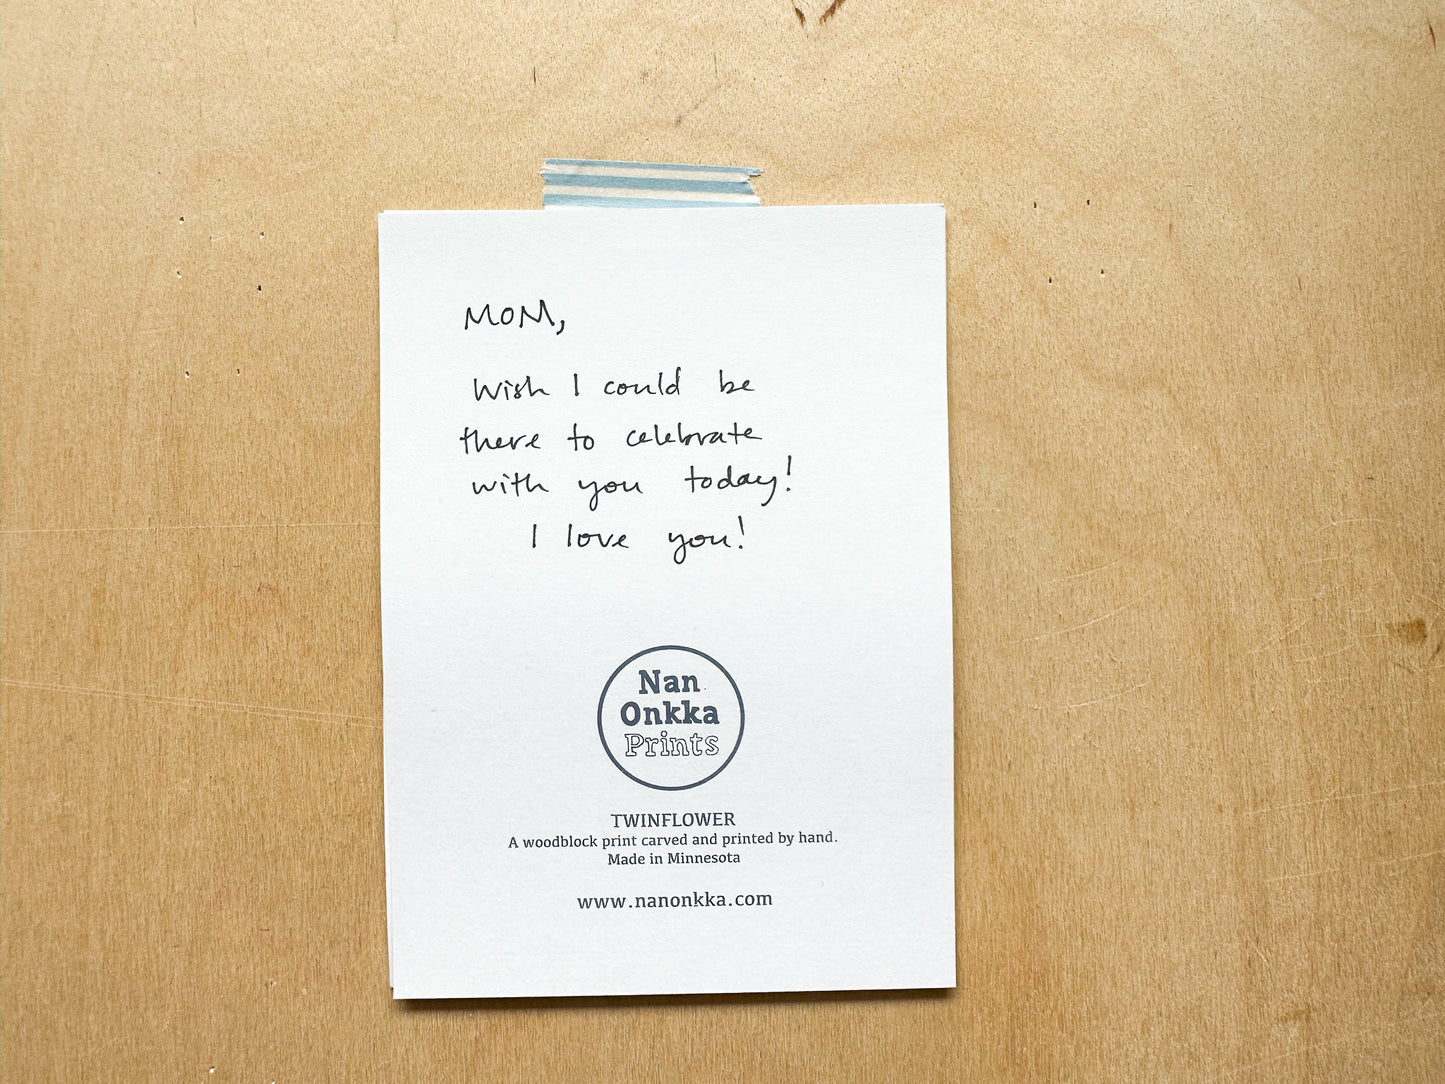 MOM,
Wish I could be
there to celebrate
with you today!
I love you!
Nan
Onkka
Prints
TWINFLOWER
A woodblock print carved and printed by hand.
Made in Minnesota
www.nanonkka.com